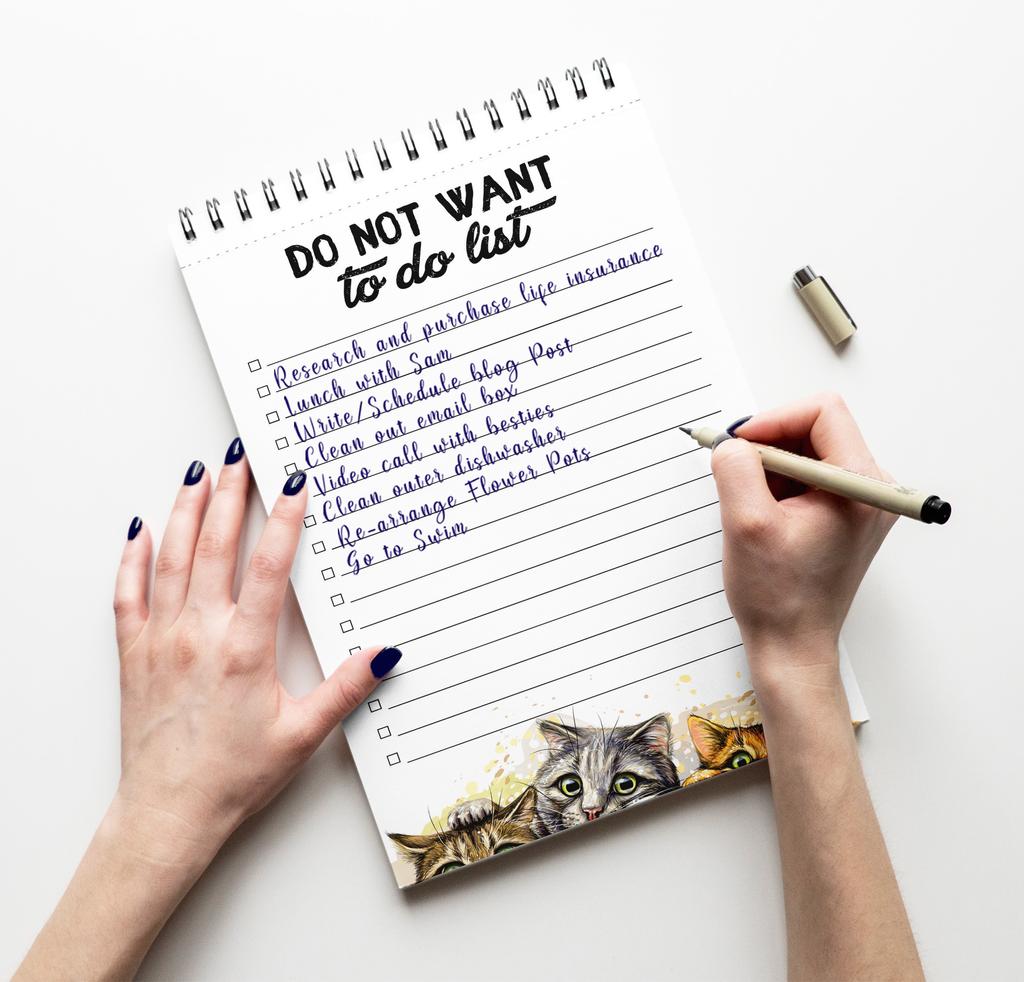 DO NOT WANT
to do list
Research and purchase life insurance
Lunch with Sam
Write/Schedule blog Post
Clean out email box
Video call with besties
Clean outer dishwasher
Re-arrange Flower Pots
Go to Swim